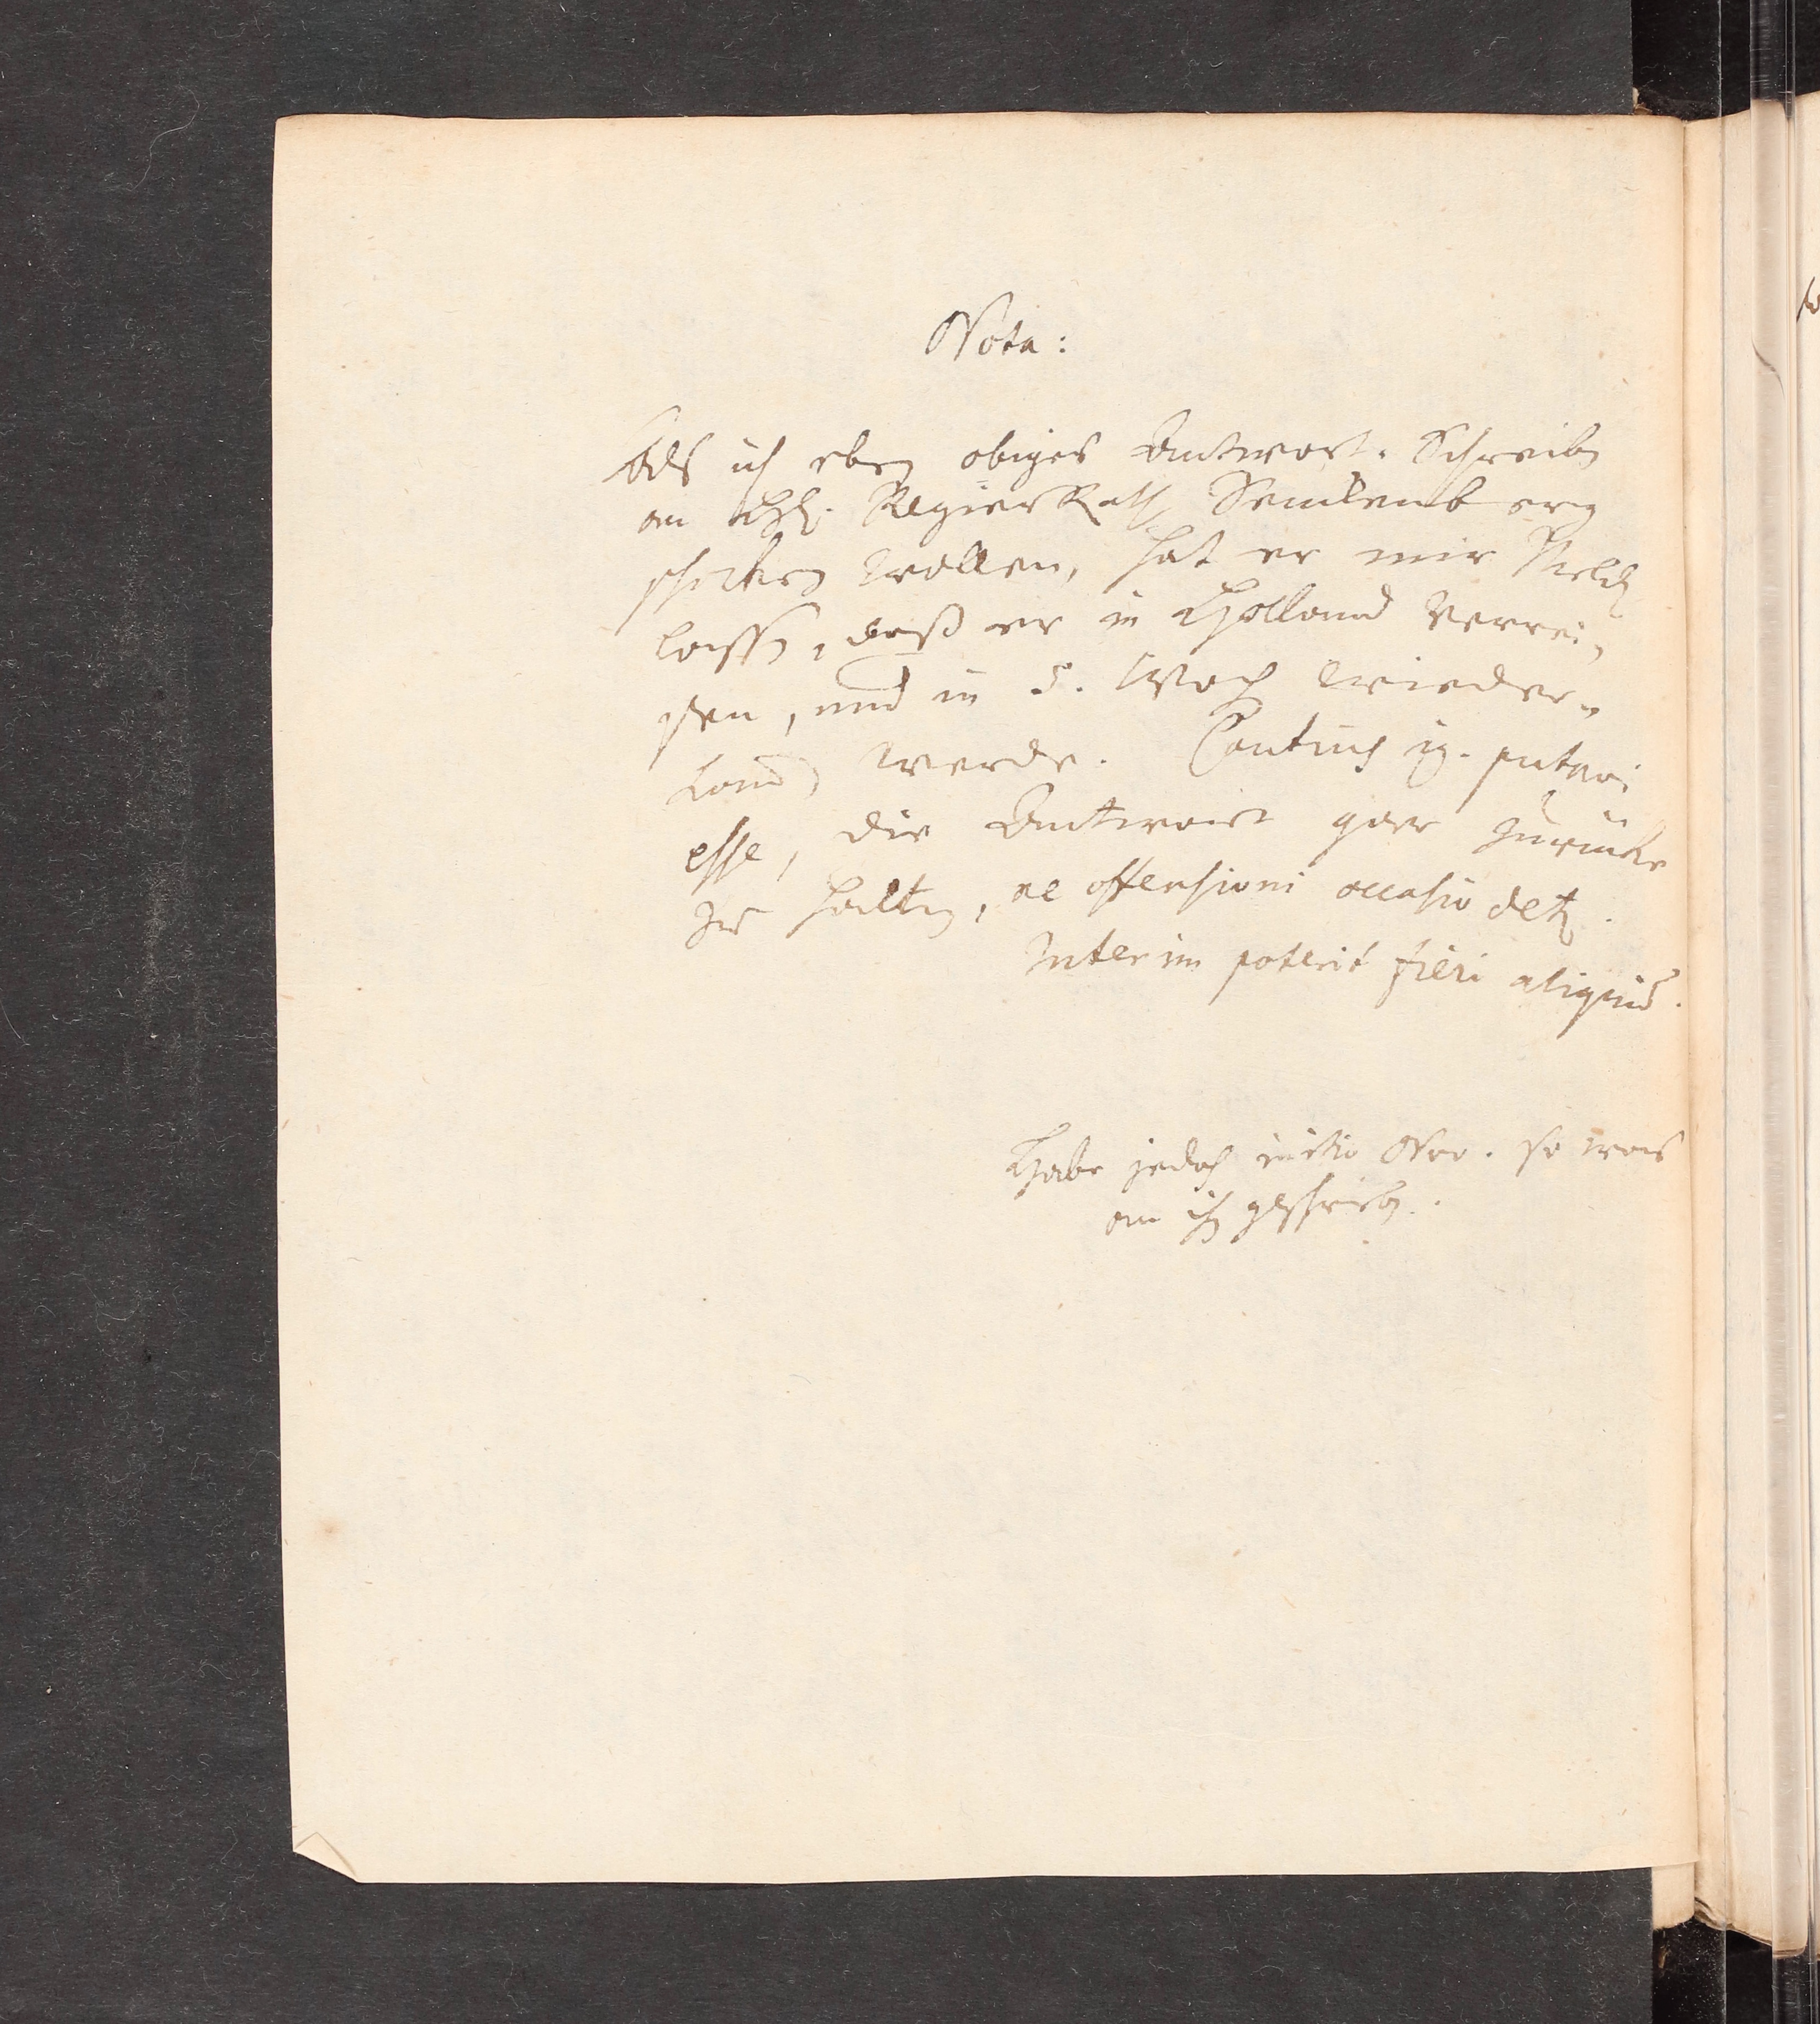 Nota:
Als ich eben obiges Antwort-Schreiben
an H. RegierRath Senckenberg
schicken wollen, hat er mir Meld
lassen, daß er in Holland verrei„
sen, und in 5. Woch wieder„
kom̄ werde. Cautius ig. putavi
esse, die Antwort gar zurücke
zu halten, ne offensioni occasio det.
Interim poterit fieri aliquid.
Habe jedoch initio Nov. so was
an ihn geschrieben.